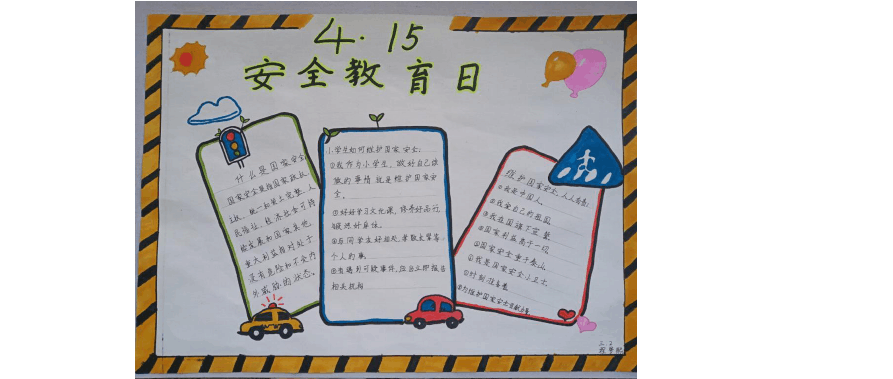 4·15
安全教育日
什么是国家安全
国家安全是指国家政权、
主权、统一和领土完整、人
民福祉、经济社会可持
续发展和国家其他
重大利益相对处于
没有危险和不受内
外威胁的状态。
1.小学生如何维护国家安全:
①我作为小学生,做好自己该
做的事情就是维护国家安
全。
②好好学习文化课,修养好品行,
锻炼好身体。
③与同学友好相处,
个人的事。
④遇到可疑事件,应当立即报告
相关机构
维护国家安全,人人有责:
①我是中国人。
②我爱自己的祖国。
③我在国旗下宣誓。
④国家利益高于一切。
⑤国家安全重于泰山。
⑥我是国家安全小卫士。
⑦时刻准备着
维护国家安全